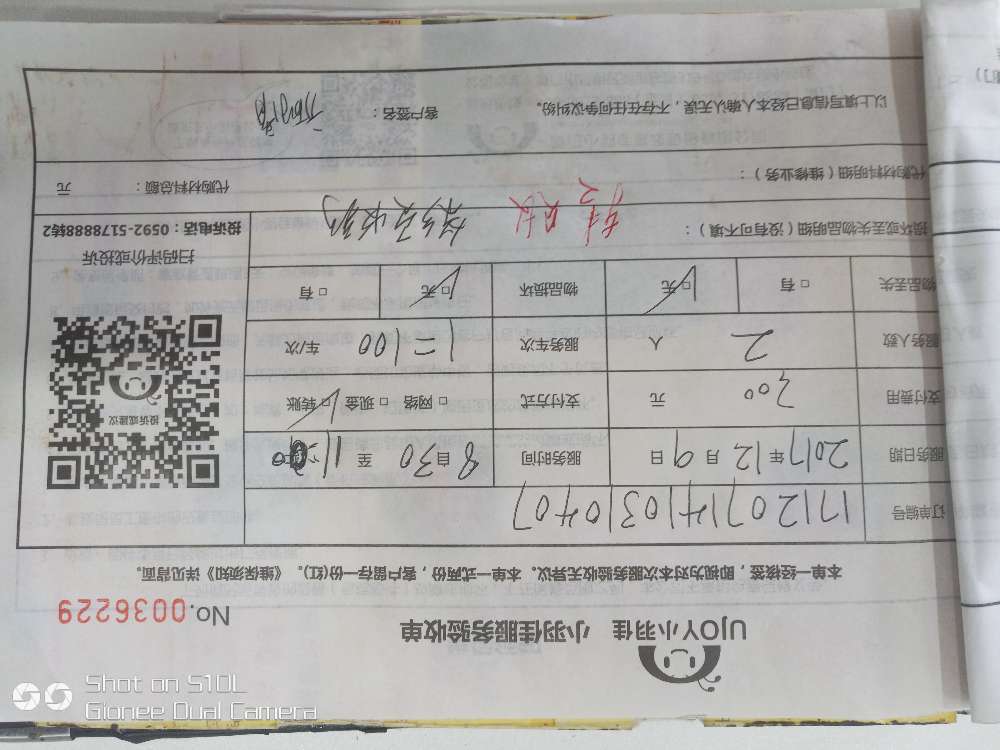 UJOY小羽佳 小羽佳服务验收单
No.0036229
本单一经核签，即视为对本次服务验收无异议。本单一式两份，客户留存一份(红)。《维保须知》详见背面。
订单编号 171207141030407
服务日期 2017年12月9日 服务时间 8自30至11
支付费用 200 元 支付方式 □网络 □现金 □转账
服务人数 2 人 服务车次 1=100 车/次
物品丢失 □有 □无 物品损坏 □无 □有
投诉或建议
扫码评价或投诉
投诉电话：0592-5178888转2
损坏或丢失物品明细（没有可不填）：
代购材料明细（维修业务）： 代购材料总额： 元
以上填写信息已经本人确认无误，不存在任何争议纠纷。 客户签名：
Shot on S10L
Gionee Dual Camera